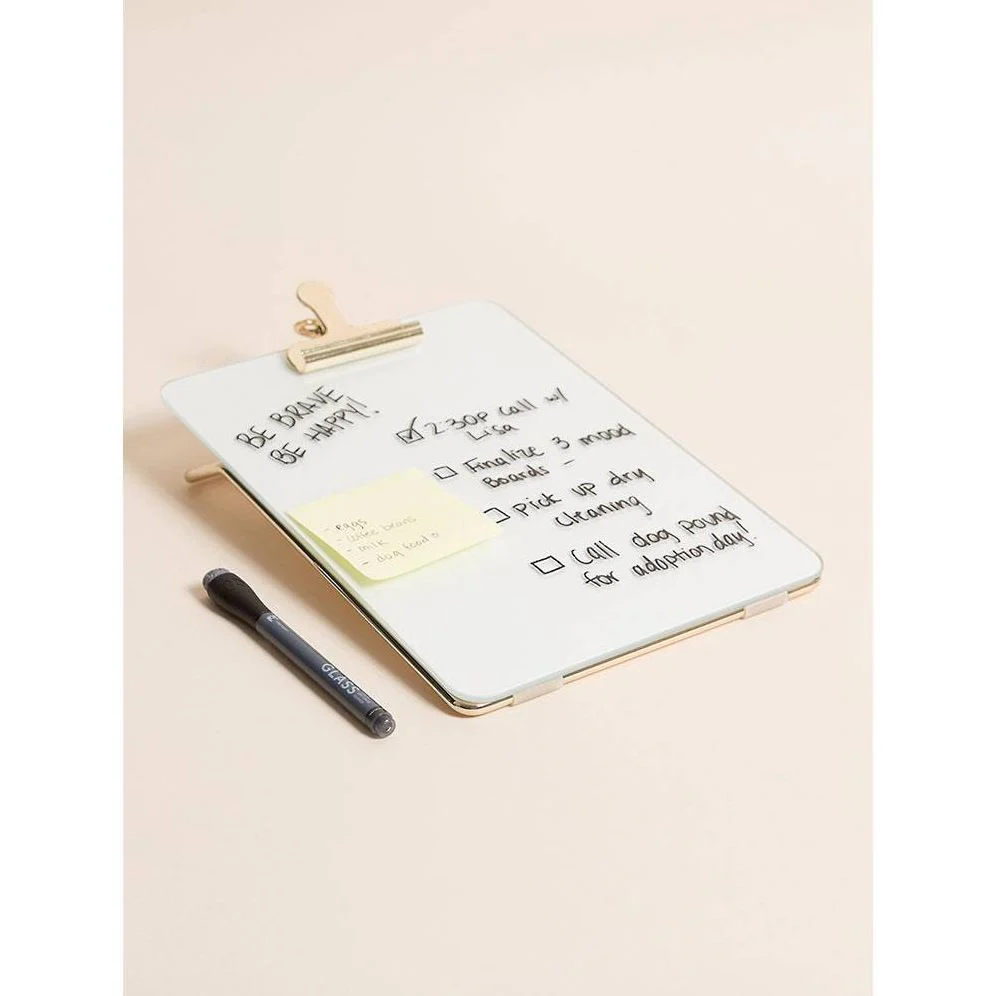 BE BRAVE
BE HAPPY!
2:30p call w/
Lisa
Finalize 3 mood
Boards -
Pick up dry
Cleaning
Call dog pound
for adoption day!
- eggs
- coffee beans
- milk
- dog food
GLASS